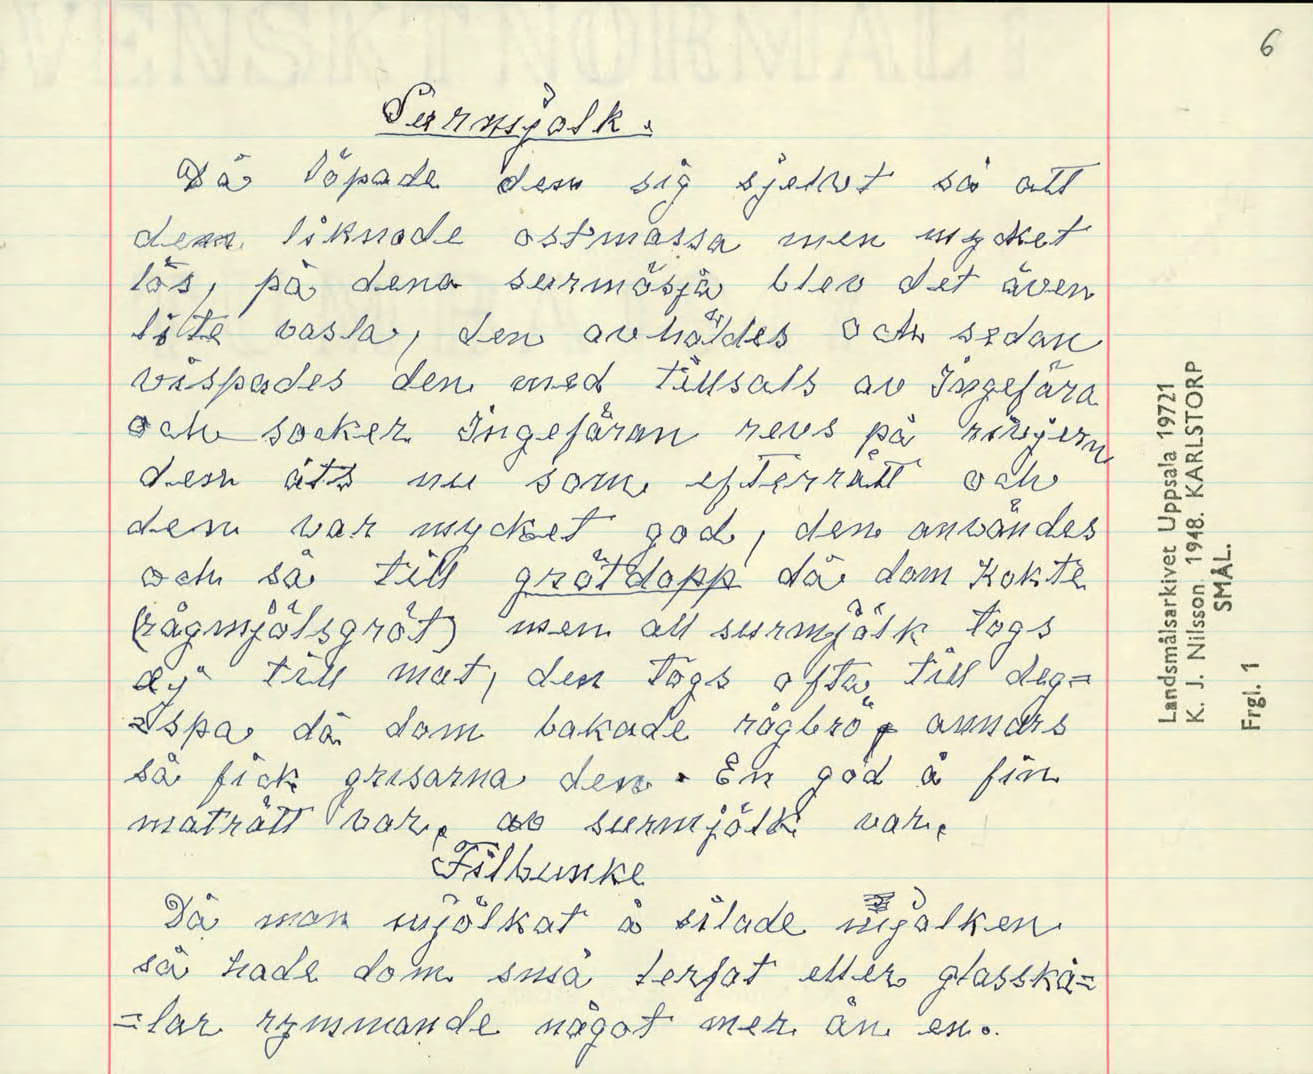 6
Surmjölk.
Då löpade den sig sjelvt så att
den liknade ostmassa men mycket
lös, på dena surmösjä blev det även
lite vasla, den avhäldes och sedan
vispades den med tillsats av Ingefära
och socker Ingefäran revs på rivjern
den äts nu som efterrätt och
den var mycket god, den användes
och så till grötdopp då dom kokte
(rågmjölsgröt) men all surmjölk togs
ej till mat, den togs ofta till deg=
=spa då dom bakade rågbrö, annars
så fick grisarna den. En god å fin
maträtt var, av surmjölk var,
Filbunke
Då man mjölkat å silade mjölken
så hade dom små lerfat eller glasskå=
=lar rymmande något mer än en.
Landsmålsarkivet Uppsala 19721
K. J. Nilsson. 1948. KARLSTORP
SMÅL.
Frgl. 1